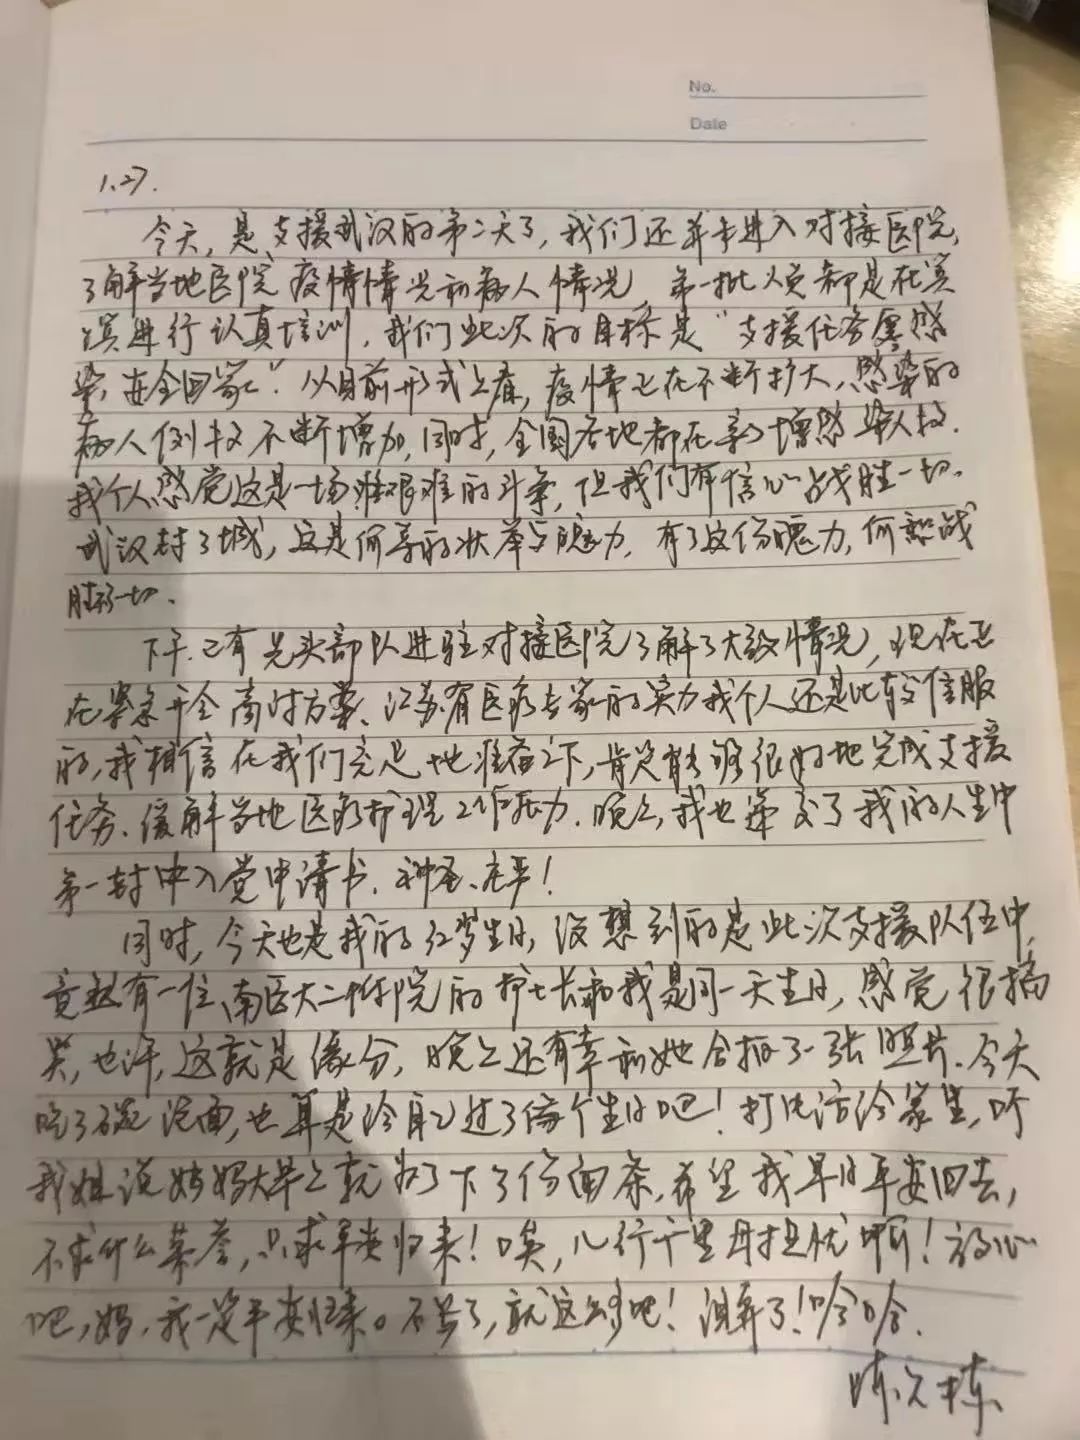 No.
Date
1.27.
今天,是支援武汉的第二天了,我们还并未进入对接医院,
了解当地医院疫情情况和病人情况,第一批人员都是在宾
馆进行认真培训,我们此次的目标是“支援任务零感
染,安全回家”.从目前形式上看,疫情正在不断扩大,感染的
病人例数不断增加,同时,全国各地都在新增感染人数.
我个人感觉这是一场艰难的斗争,但我们有信心战胜一切.
武汉封了城,这是何等的壮举与魄力,有了这份魄力,何愁战
胜不了一切.
下午,已有先头部队进驻对接医院了解了大致情况,现在正
在紧急开会商讨方案、江苏省医疗专家的实力我个人还是比较信服
的,我相信在我们充足地准备之下,肯定能够很好地完成支援
任务、缓解当地医疗护理工作压力.晚上,我也递交了我的人生中
第一封申入党申请书.神圣、庄严!
同时,今天也是我的 岁生日,没想到的是此次支援队伍中,
竟然有一位南医大二附院的护士长和我是同一天生日,感觉很搞
笑,也许,这就是缘分,晚上还有幸和她合拍了一张照片.今天
吃了碗泡面,也算是给自己过了个生日吧!打电话给家里,听
我姐说妈妈大早上就为了下了份面条,希望我早日平安回去,
不求什么荣誉,只求平安归来!唉,儿行千里母担忧啊!放心
吧,妈,我一定平安归来。不写了,就这么多吧!泪奔了!哈哈.